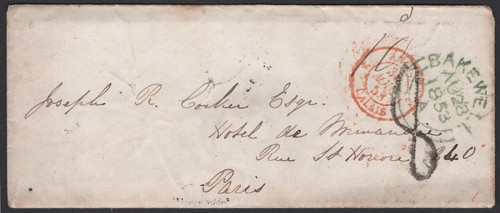 BAKEWELL
AU 28
1853
A
CALAIS
53
8
Joseph R. Cocker Esqr.
Hotel de Normandie
Rue St Honore 240
Paris